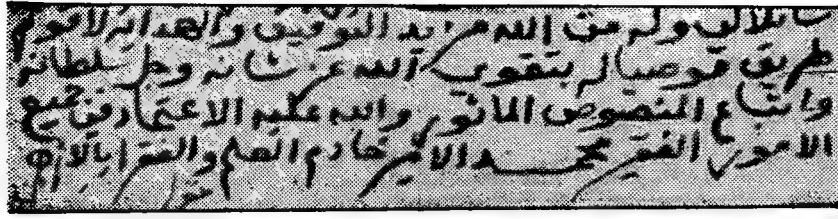 سائلا لي وله من الله مزيد التوفيق والهدايه لاقوم
طريق موصيا له بتقوى الله عز شانه وجل سلطانه
واتباع المنصوص الماثور والله عليه الاعتماد في جميع
الامور الفقير محمد الامير خادم العلم والفقرا بالازهر